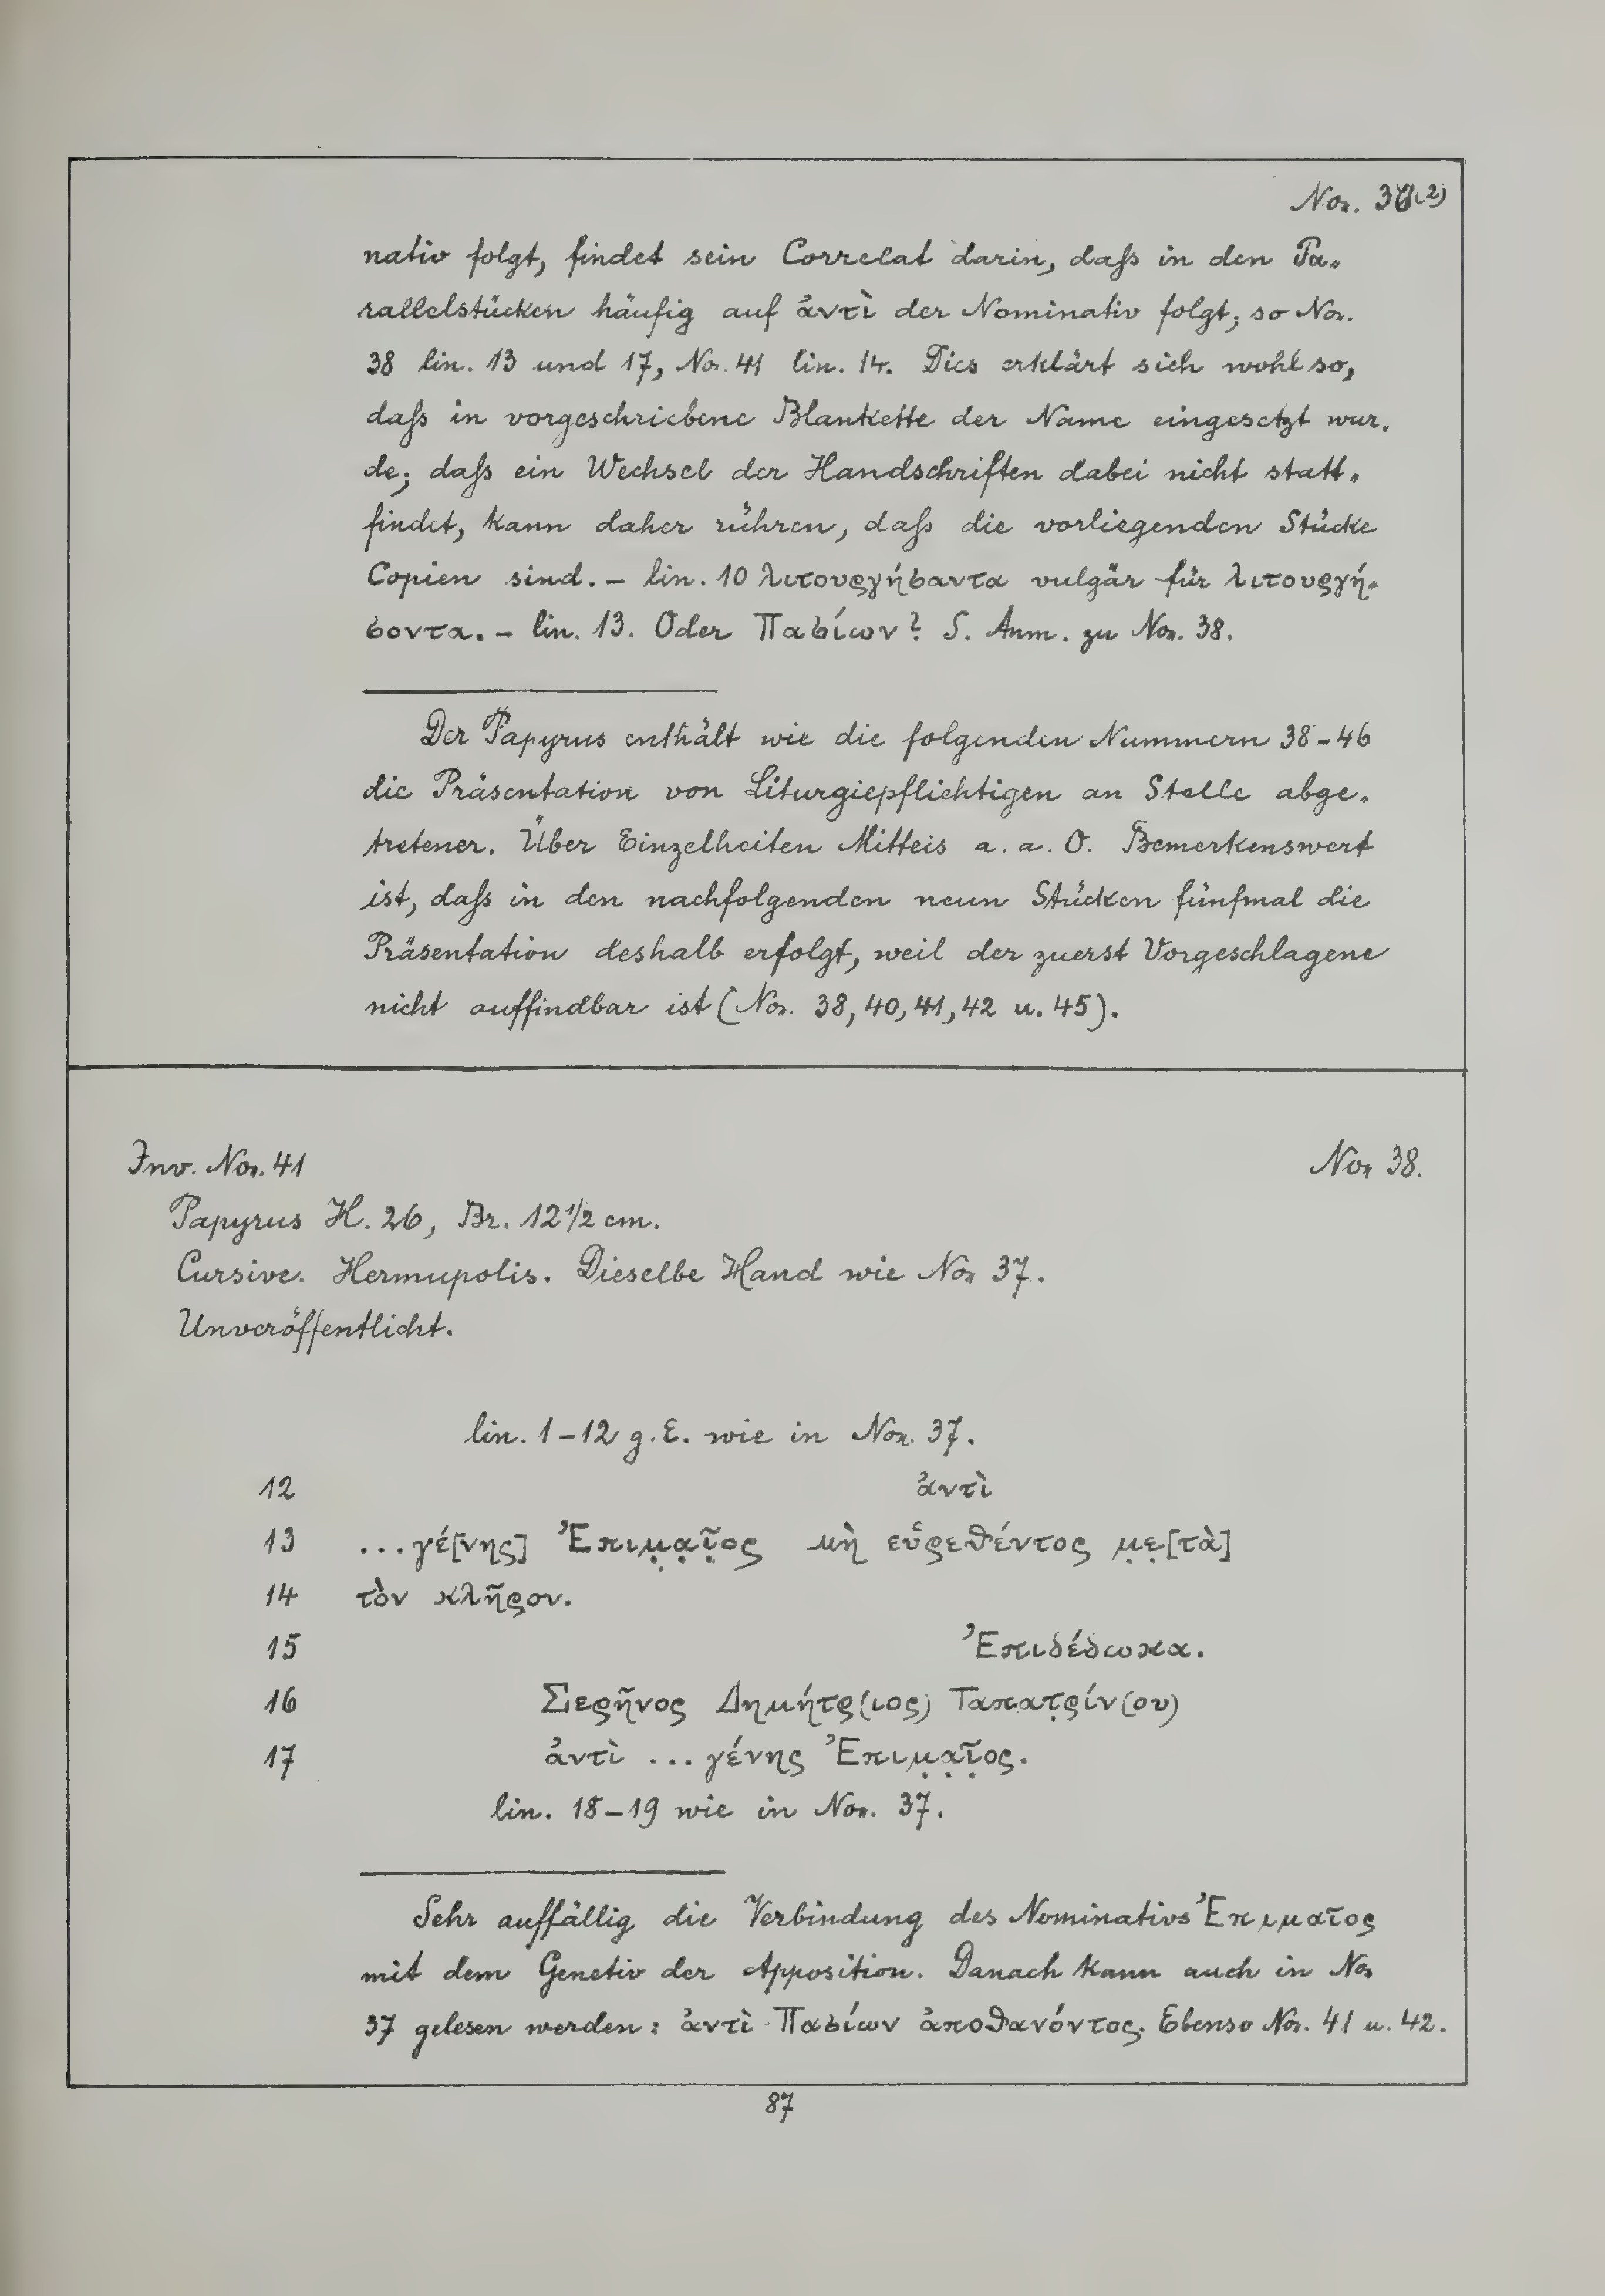 Nor. 37(2)
nativ folgt, findet sein Correlat darin, daſs in den Pa-
rallelstücken häufig auf ἀντὶ der Nominativ folgt; so Nor.
38 lin. 13 und 17, Nr. 41 lin. 14. Dies erklärt sich wohl so,
daſs in vorgeschriebene Blankette der Name eingesetzt wur-
de; daſs ein Wechsel der Handschriften dabei nicht statt-
findet, kann daher rühren, daſs die vorliegenden Stücke
Copien sind. – lin. 10 λιτουργήσαντα vulgär für λιτουργή-
σοντα. – lin. 13. Oder Πασίων? S. Anm. zu Nor. 38.
Der Papyrus enthält wie die folgenden Nummern 38–46
die Präsentation von Liturgiepflichtigen an Stelle abge-
tretener. Über Einzelheiten Mitteis a. a. O. Bemerkenswert
ist, daſs in den nachfolgenden neun Stücken fünfmal die
Präsentation deshalb erfolgt, weil der zuerst Vorgeschlagene
nicht auffindbar ist (Nor. 38, 40, 41, 42 u. 45).
Inv. Nor. 41 Nor 38.
Papyrus H. 26, Br. 12 1/2 cm.
Cursive. Hermupolis. Dieselbe Hand wie Nor 37.
Unveröffentlicht.
lin. 1–12 g. E. wie in Nor. 37.
12 ἀντὶ
13 ...γέ[νης] Ἐπιμ̣α̣ῖ̣ος μὴ εὑρεθέντος μ̣ε̣[τὰ]
14 τὸν κλῆρον.
15 Ἐπιδέδωκα.
16 Σιερῆνος Δημήτρ(ιος) Ταπατ̣ρίν(ου)
17 ἀντὶ ... γένης Ἐπιμ̣α̣ῖ̣ος.
lin. 18–19 wie in Nor. 37.
Sehr auffällig die Verbindung des Nominativs Ἐπιμαῖος
mit dem Genetiv der Apposition. Danach kann auch in Nor
37 gelesen werden: ἀντὶ Πασίων ἀποθανόντος. Ebenso Nor. 41 u. 42.
87